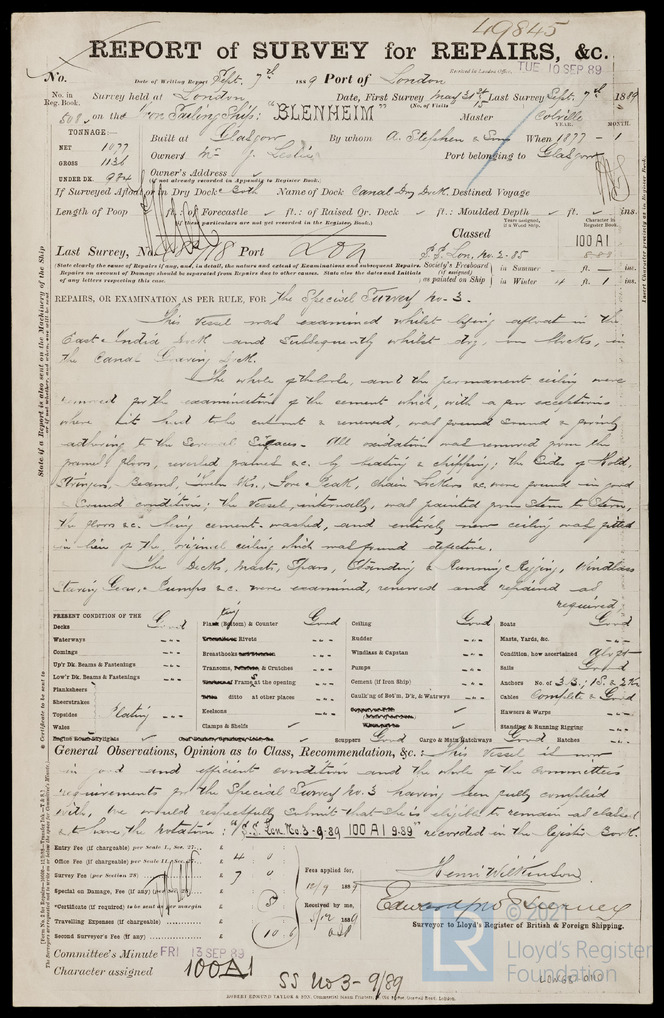 49845
REPORT of SURVEY for REPAIRS, &c.
No. Date of Writing Report Sept. 7th 1889 Port of London Received in London Office, TUE 10 SEP 89
No. in Reg. Book. Survey held at London Date, First Survey May 31st Last Survey Sept. 7th 1889
508 on the Iron Sailing Ship: "BLENHEIM" (No. of Visits 15) Master Colville
TONNAGE: YEAR. MONTH.
NET 1077 Built at Glasgow By whom A. Stephen & Sons When 1877 - 1
GROSS 1136 Owners J. Leslie Port belonging to Glasgow
UNDER DK. 984 Owner's Address
(if not already recorded in Appendix to Register Book).
If Surveyed Afloat or in Dry Dock Both Name of Dock Canal Dry Dock. Destined Voyage
Length of Poop ft.: of Forecastle ft.: of Raised Qr. Deck ft.: Moulded Depth ft. ins.
(If these particulars are not yet recorded in the Register Book.)
Years assigned, if a Wood Ship. Character in Register Book.
Classed 100 A1
Last Survey, No. Port Lon S.S. Lon. No. 2-85
(State clearly the cause of Repairs if any, and, in detail, the nature and extent of Examinations and subsequent Repairs. Repairs on account of Damage should be separated from Repairs due to other causes. State also the dates and Initials of any letters respecting this case.)
Society's Freeboard (if assigned) as painted on Ship
in Summer - ft. - ins.
in Winter 4 ft. 1 ins.
REPAIRS, OR EXAMINATION, AS PER RULE, FOR the Special Survey No. 3.
This Vessel was examined whilst lying afloat in the
East India Dock and subsequently whilst dry, on blocks, in
the Canal Graving Dock.
The whole of the hold, and the permanent ceiling were
removed for the examination of the cement which, with a few exceptions
where it had to be cut out & renewed, was found sound & firmly
adhering to the several surfaces. All oxidation was removed from the
frames, floors, reversed frames &c. by beating & chipping; the sides of Hold,
Stringers, Beams, Fore Peak, chain Lockers &c. were found in good
& sound condition; the Vessel, internally, was painted from Stem to Stern,
the floors &c. being cement-washed, and entirely new ceiling was fitted
in lieu of the original ceiling which was found defective.
The Decks, Masts, Spars, Standing & Running Rigging, Windlass
Steering Gear, Pumps &c. were examined, renewed and repaired as
required.
PRESENT CONDITION OF THE
Decks Good
Waterways
Comings
Up'r Dk. Beams & Fastenings
Low'r Dk. Beams & Fastenings
Planksheers
Sheerstrakes
Topsides Plating
Wales
Plating (Bottom) & Counter Good
Rivets
Breasthooks
Transoms, & Crutches
Frames at the opening
ditto at other places
Keelsons
Clamps & Shelfs
Ceiling Good
Rudder
Windlass & Capstan
Pumps
Cement (if Iron Ship)
Caulk'ng of Bot'm, D'k, & Watrwys
Scuppers Good Cargo & Main Hatchways Good Hatches
Boats Good
Masts, Yards, &c.
Condition, how ascertained
Sails Good
Anchors No. of 3 B.; 1 S. & 2 K.
Cables Complete & Good
Hawsers & Warps
Standing & Running Rigging
General Observations, Opinion as to Class, Recommendation, &c.: This Vessel is now
in good and efficient condition and the whole of the Committee's
requirements for the Special Survey No. 3 having been fully complied
with, we would respectfully submit that she is eligible to remain as classed
& have the Notation: "S.S. Lon. No. 3-9-89 100 A1 9.89" recorded in the Register Book.
Entry Fee (if chargeable) per Scale I., Sec. 27 £
Office Fee (if chargeable) per Scale II., Sec. 27 £ 4 0
Survey Fee (per Section 28) £ 7 0
Special on Damage, Fee (if any) (per Sec. 28) £
*Certificate (if required) to be sent as per margin
Travelling Expenses (if chargeable) £
Second Surveyor's Fee (if any) £
Fees applied for, 10/9 1889
Received by me, 1889
Henri Wilkinson
Surveyor to Lloyd's Register of British & Foreign Shipping.
Committee's Minute FRI 13 SEP 89
Character assigned 100A1
SS No 3 - 9/89
ROBERT EDMUND TAYLOR & SON, Commercial Steam Printers, Old Street, Goswell Road, London.
State if a Report is also sent on the Machinery of the Ship
LR © 2021
Lloyd's Register
Foundation